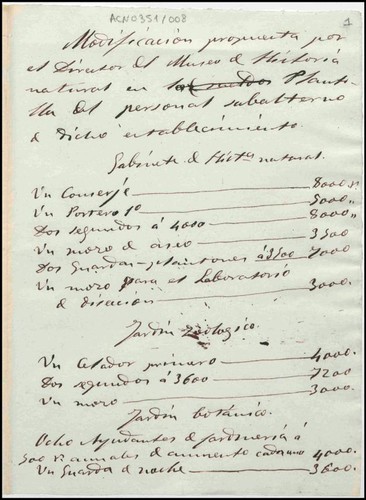 ACN0351/008
1
Modificacion propuesta por
el Director del Museo de Historia
natural en la Planti-
lla del personal subalterno
de dicho establecimiento.
Gabinete de Histª natural.
Un Conserje 8000
Un Portero 1º 5000 "
Dos segundos á 4000 8000 "
Un mozo de aseo 3500
Dos Guardas-plantones á 3500 7000
Un mozo para el Laboratorio
de diseccion 3500.
Jardin zoologico.
Un Celador primero 4000.
Dos segundos á 3600 7200
Un mozo 3000.
Jardin botánico.
Ocho Ayudantes de jardineria á
500 rs anuales de aumento cada uno 4000.
Un Guarda de noche 3600.